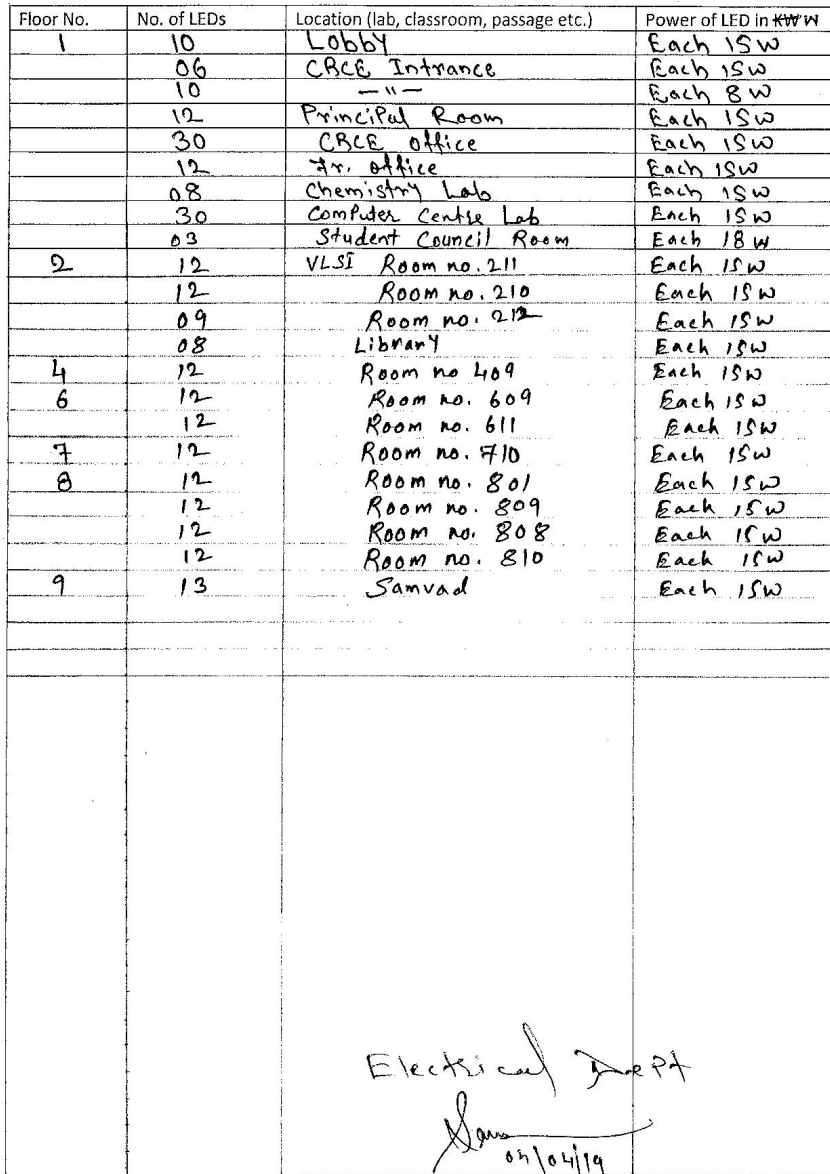 Floor No. No. of LEDs Location (lab, classroom, passage etc.) Power of LED in KW W
1 10 Lobby Each 15W
06 CRCE Intrance Each 15W
10 —"— Each 8W
12 Principal Room Each 15W
30 CRCE office Each 15W
12 Fr. office Each 15W
08 Chemistry Lab Each 15W
30 Computer Centre Lab Each 15W
03 Student Council Room Each 18W
2 12 VLSI Room no. 211 Each 15W
12 Room no. 210 Each 15W
09 Room no. 212 Each 15W
08 Library Each 15W
4 12 Room no 409 Each 15W
6 12 Room no. 609 Each 15W
12 Room no. 611 Each 15W
7 12 Room no. 710 Each 15W
8 12 Room no. 801 Each 15W
12 Room no. 809 Each 15W
12 Room no. 808 Each 15W
12 Room no. 810 Each 15W
9 13 Samvad Each 15W
Electrical Dept